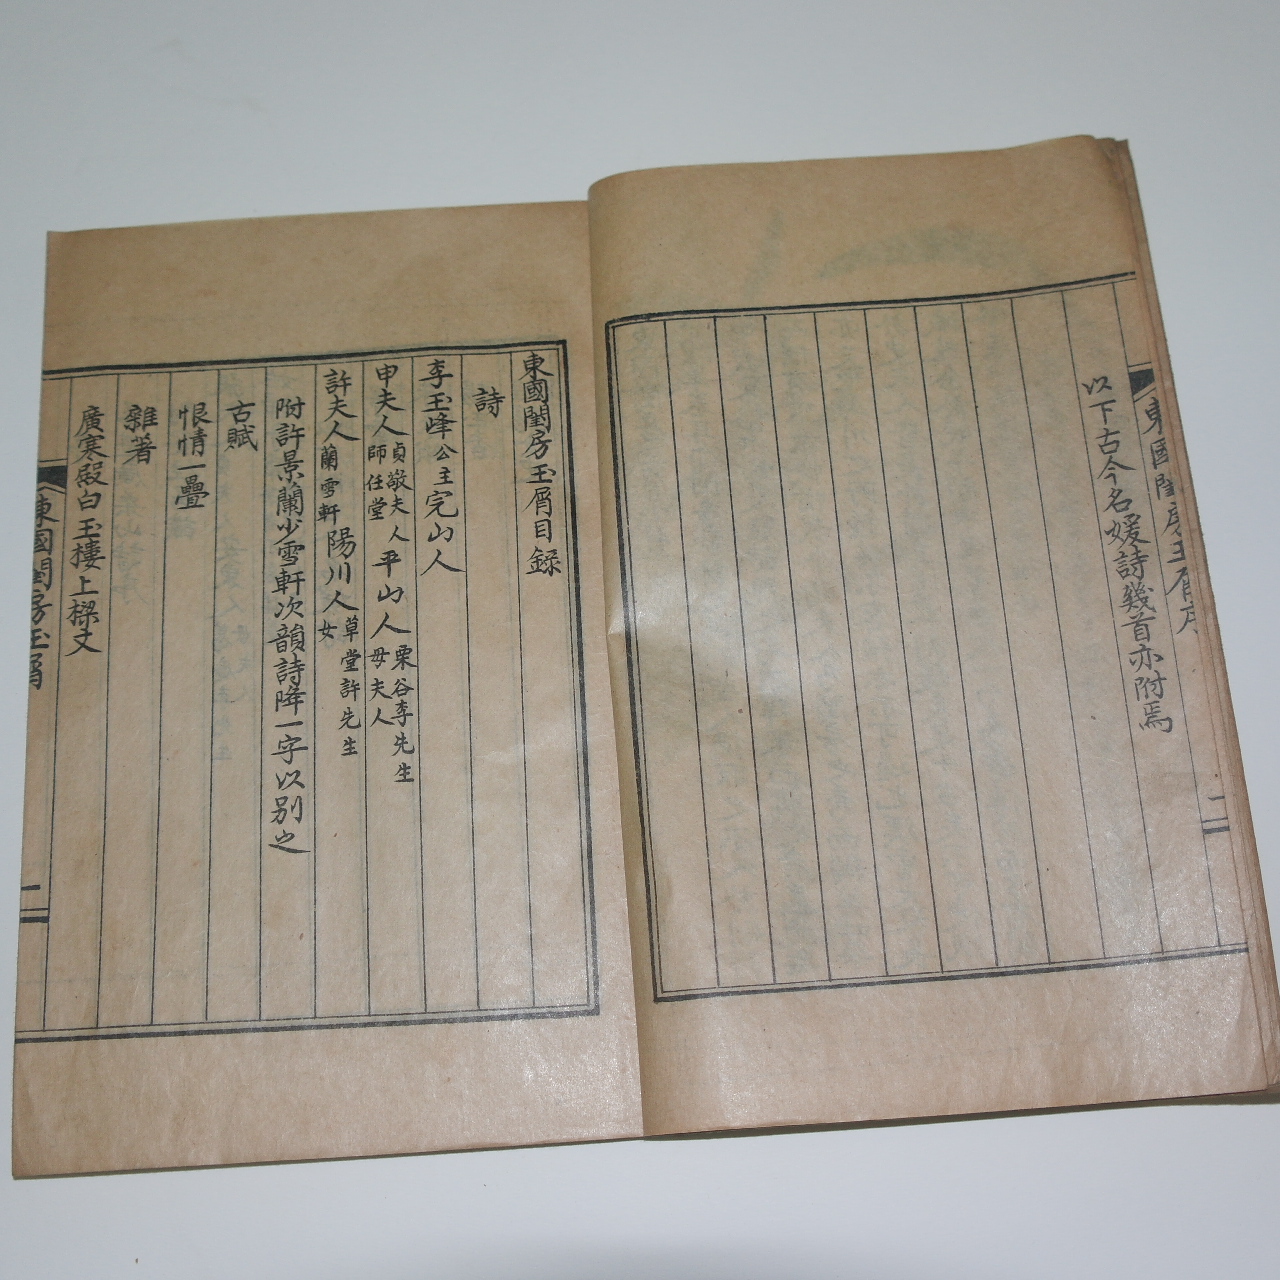 東國閨房玉屑序
二
以下古今名媛詩幾首亦附焉
東國閨房玉屑目錄
詩
李玉峰公主完山人
申夫人貞敬夫人師任堂平山人栗谷李先生母夫人
許夫人蘭雪軒陽川人草堂許先生女
附許景蘭少雪軒次韻詩降一字以別之
古賦
恨情一疊
雜著
廣寒殿白玉樓上樑文
東國閨房玉屑